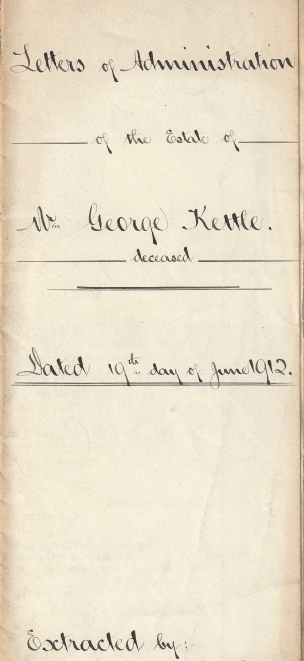 Letters of Administration
of the Estate of
Mr. George Kettle.
deceased
Dated 19th day of June 1912.
Extracted by: